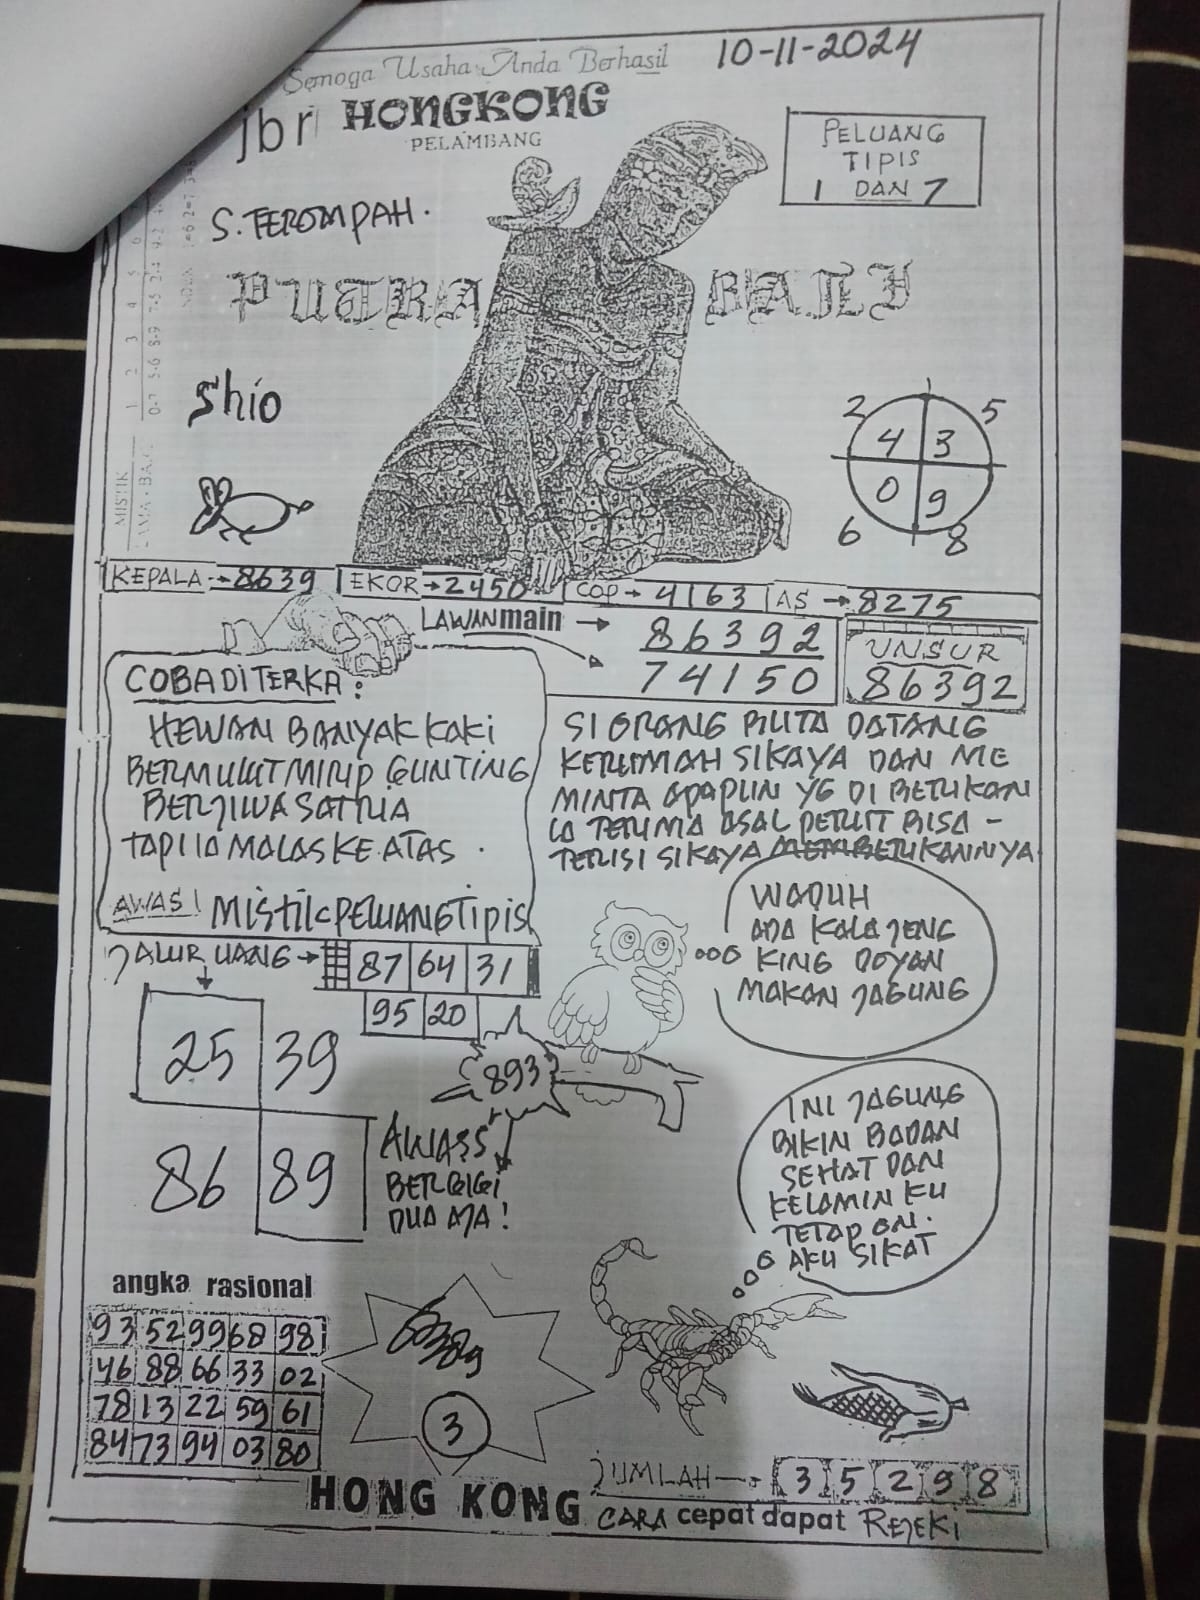 Semoga Usaha Anda Berhasil
10-11-2024
jbr HONGKONG
PELAMBANG
PELUANG
TIPIS
1 DAN 7
S. TEROMPAH.
PUTRA BALI
shio
2 5
4 3
0 9
6 8
MISTIK
KEPALA → 8639 EKOR → 2450 COP → 4163 AS → 8275
LAWAN main →
86392
74150
UNSUR
86392
COBA DITERKA :
HEWAN BANYAK KAKI
BERMULUT MIRIP GUNTING
BERJIWA SATRIA
TAPI IA MALAS KE ATAS .
AWAS! MISTIK PELUANG TIPIS
SI ORANG BUTA DATANG
KERUMAH SIKAYA DAN ME
MINTA APAPUN YG DI BERIKAN
IA TERIMA ASAL PERUT BISA -
TERISI SIKAYA MEMBERIKANNYA
WADUH
ADA KALAJENG
KING DOYAN
MAKAN JAGUNG
JALUR UANG → 87 64 31
95 20
25 39
86 89
893
AWASS
BERGIGI
DUA AJA!
INI JAGUNG
BIKIN BADAN
SEHAT DAN
KELAMIN KU
TETAP ON.
AKU SIKAT
angka rasional
93 52 99 68 98
46 88 66 33 02
78 13 22 59 61
84 73 94 03 80
3
JUMLAH → 3 5 2 9 8
HONG KONG
CARA cepat dapat REJEKI